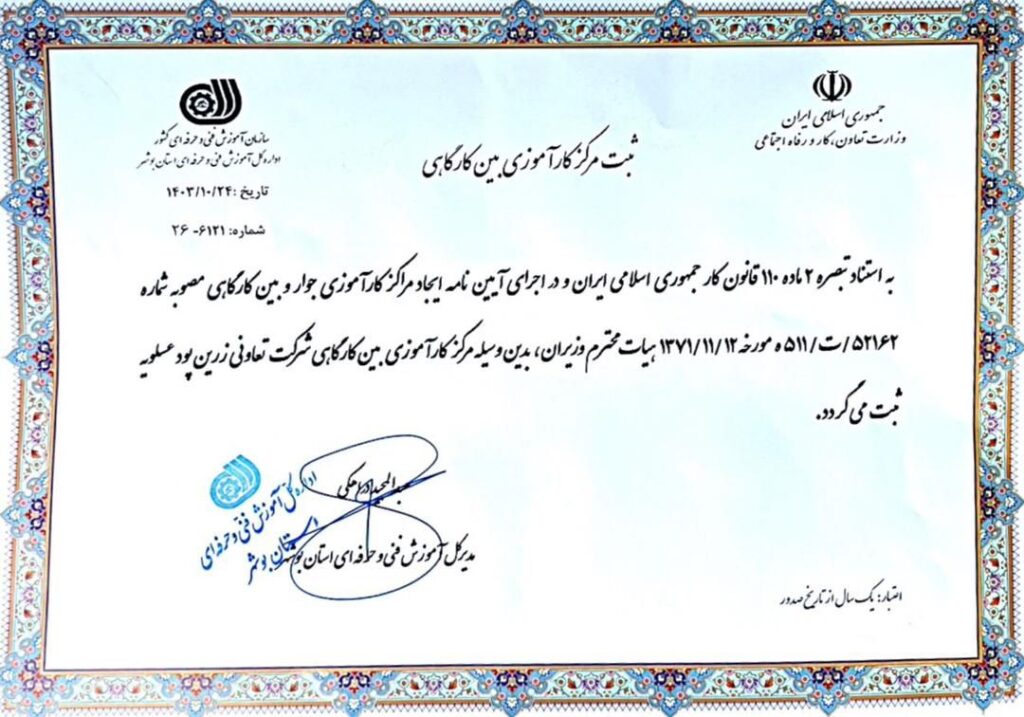 جمهوری اسلامی ایران
وزارت تعاون، کار و رفاه اجتماعی
سازمان آموزش فنی و حرفه ای کشور
اداره کل آموزش فنی و حرفه ای استان بوشهر
تاریخ: ۱۴۰۳/۱۰/۲۴
شماره: ۶۱۲۱- ۲۶
ثبت مرکز کارآموزی بین کارگاهی
به استناد تبصره ۲ ماده ۱۱۰ قانون کار جمهوری اسلامی ایران و در اجرای آیین نامه ایجاد مراکز کارآموزی جوار و بین کارگاهی مصوبه شماره
۵۲۱۶۲/ت/۵۱۱ ه مورخه ۱۳۷۱/۱۱/۱۲ هیات محترم وزیران، بدین وسیله مرکز کارآموزی بین کارگاهی شرکت تعاونی زرین پود عسلویه
ثبت می گردد.
عبدالمجید
مدیرکل آموزش فنی و حرفه ای استان بوشهر
اداره کل آموزش فنی و حرفه ای
استان بوشهر
اعتبار: یک سال از تاریخ صدور